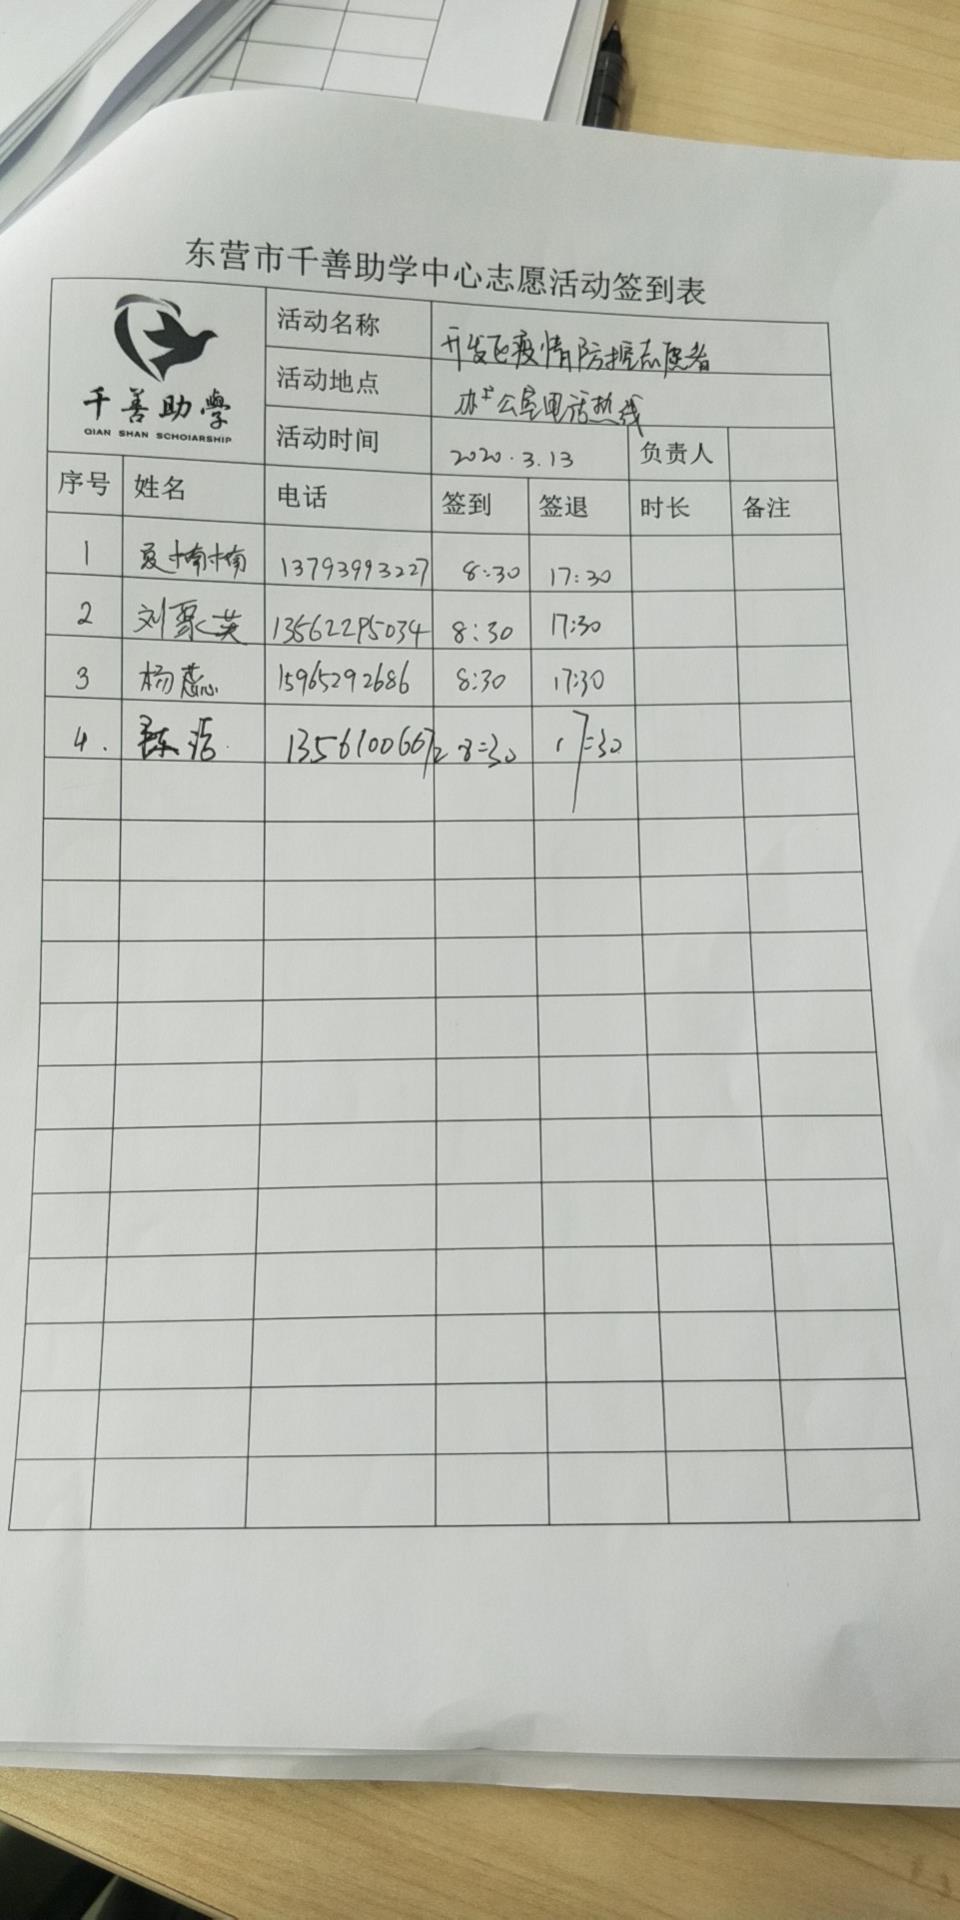 东营市千善助学中心志愿活动签到表
千善助學
QIAN SHAN SCHOlARSHIP
活动名称 开发区疫情防控志愿者
活动地点 办公室电话热线
活动时间 2020.3.13 负责人
序号 姓名 电话 签到 签退 时长 备注
1 夏楠楠 13793993227 8:30 17:30
2 刘聚英 13562295034 8:30 17:30
3 杨蕊 15965292686 8:30 17:30
4. 陈洁 13561006672 8:30 17:30